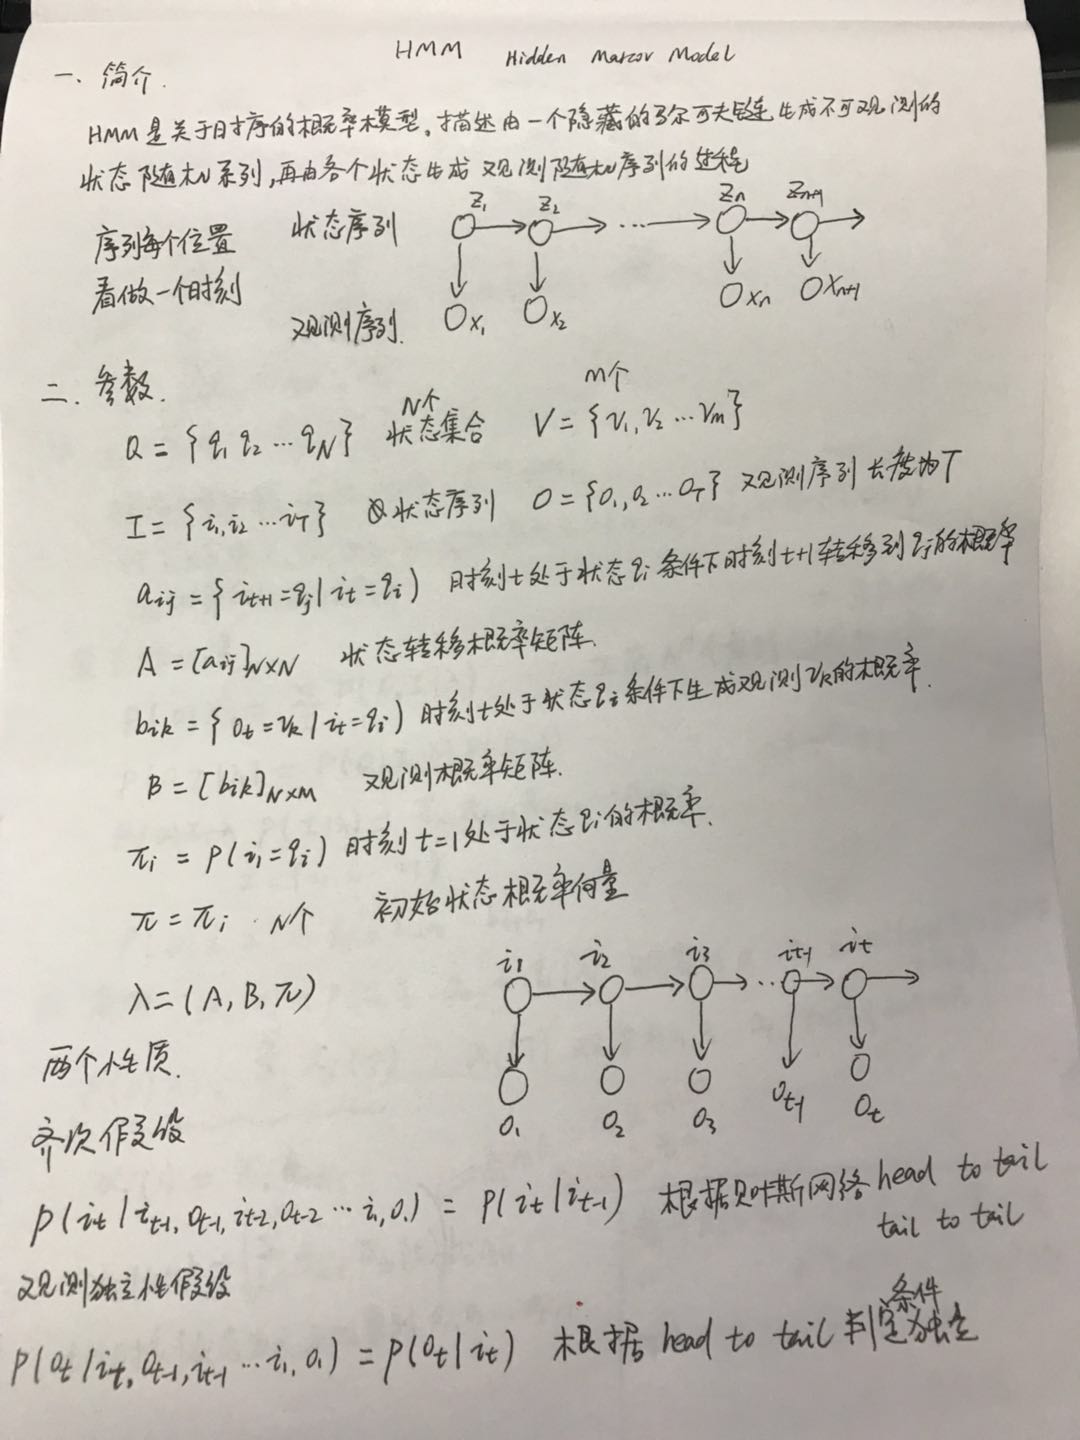 HMM Hidden Marcov Model
一、简介.
HMM是关于时序的概率模型。描述由一个隐藏的马尔可夫链生成不可观测的
状态随机系列,再由各个状态生成观测随机序列的过程
z₁ z₂ zₙ zₙ₊₁
序列每个位置 状态序列 ……
看做一个时刻
观测序列. x₁ x₂ xₙ xₙ₊₁
二、参数.
N个 M个
Q = {q₁ q₂ … q_N} 状态集合 V = {v₁, v₂ … v_m}
I = {i₁, i₂ … i_T} 状态序列 O = {o₁, o₂ … o_T} 观测序列 长度为T
a_ij = { i_t+1 = q_j | i_t = q_i ) 时刻t处于状态q_i条件下时刻t+1转移到q_j的概率
A = [a_ij]_N×N 状态转移概率矩阵.
b_ik = { o_t = v_k | i_t = q_i ) 时刻t处于状态q_i条件下生成观测v_k的概率.
B = [b_ik]_N×M 观测概率矩阵.
π_i = p( i₁ = q_i ) 时刻t=1处于状态q_i的概率.
π = π_i · N个 初始状态概率向量
i₁ i₂ i₃ i_t-1 i_t
λ = (A, B, π) ‥
两个性质.
o₁ o₂ o₃ o_t-1 o_t
齐次假设
p( i_t | i_t-1, o_t-1, i_t-2, o_t-2 … i₁, o₁) = p( i_t | i_t-1) 根据贝叶斯网络 head to tail
tail to tail
观测独立性假设
条件
p( o_t | i_t, o_t-1, i_t-1 … i₁, o₁) = p(o_t | i_t) 根据 head to tail 判定独立